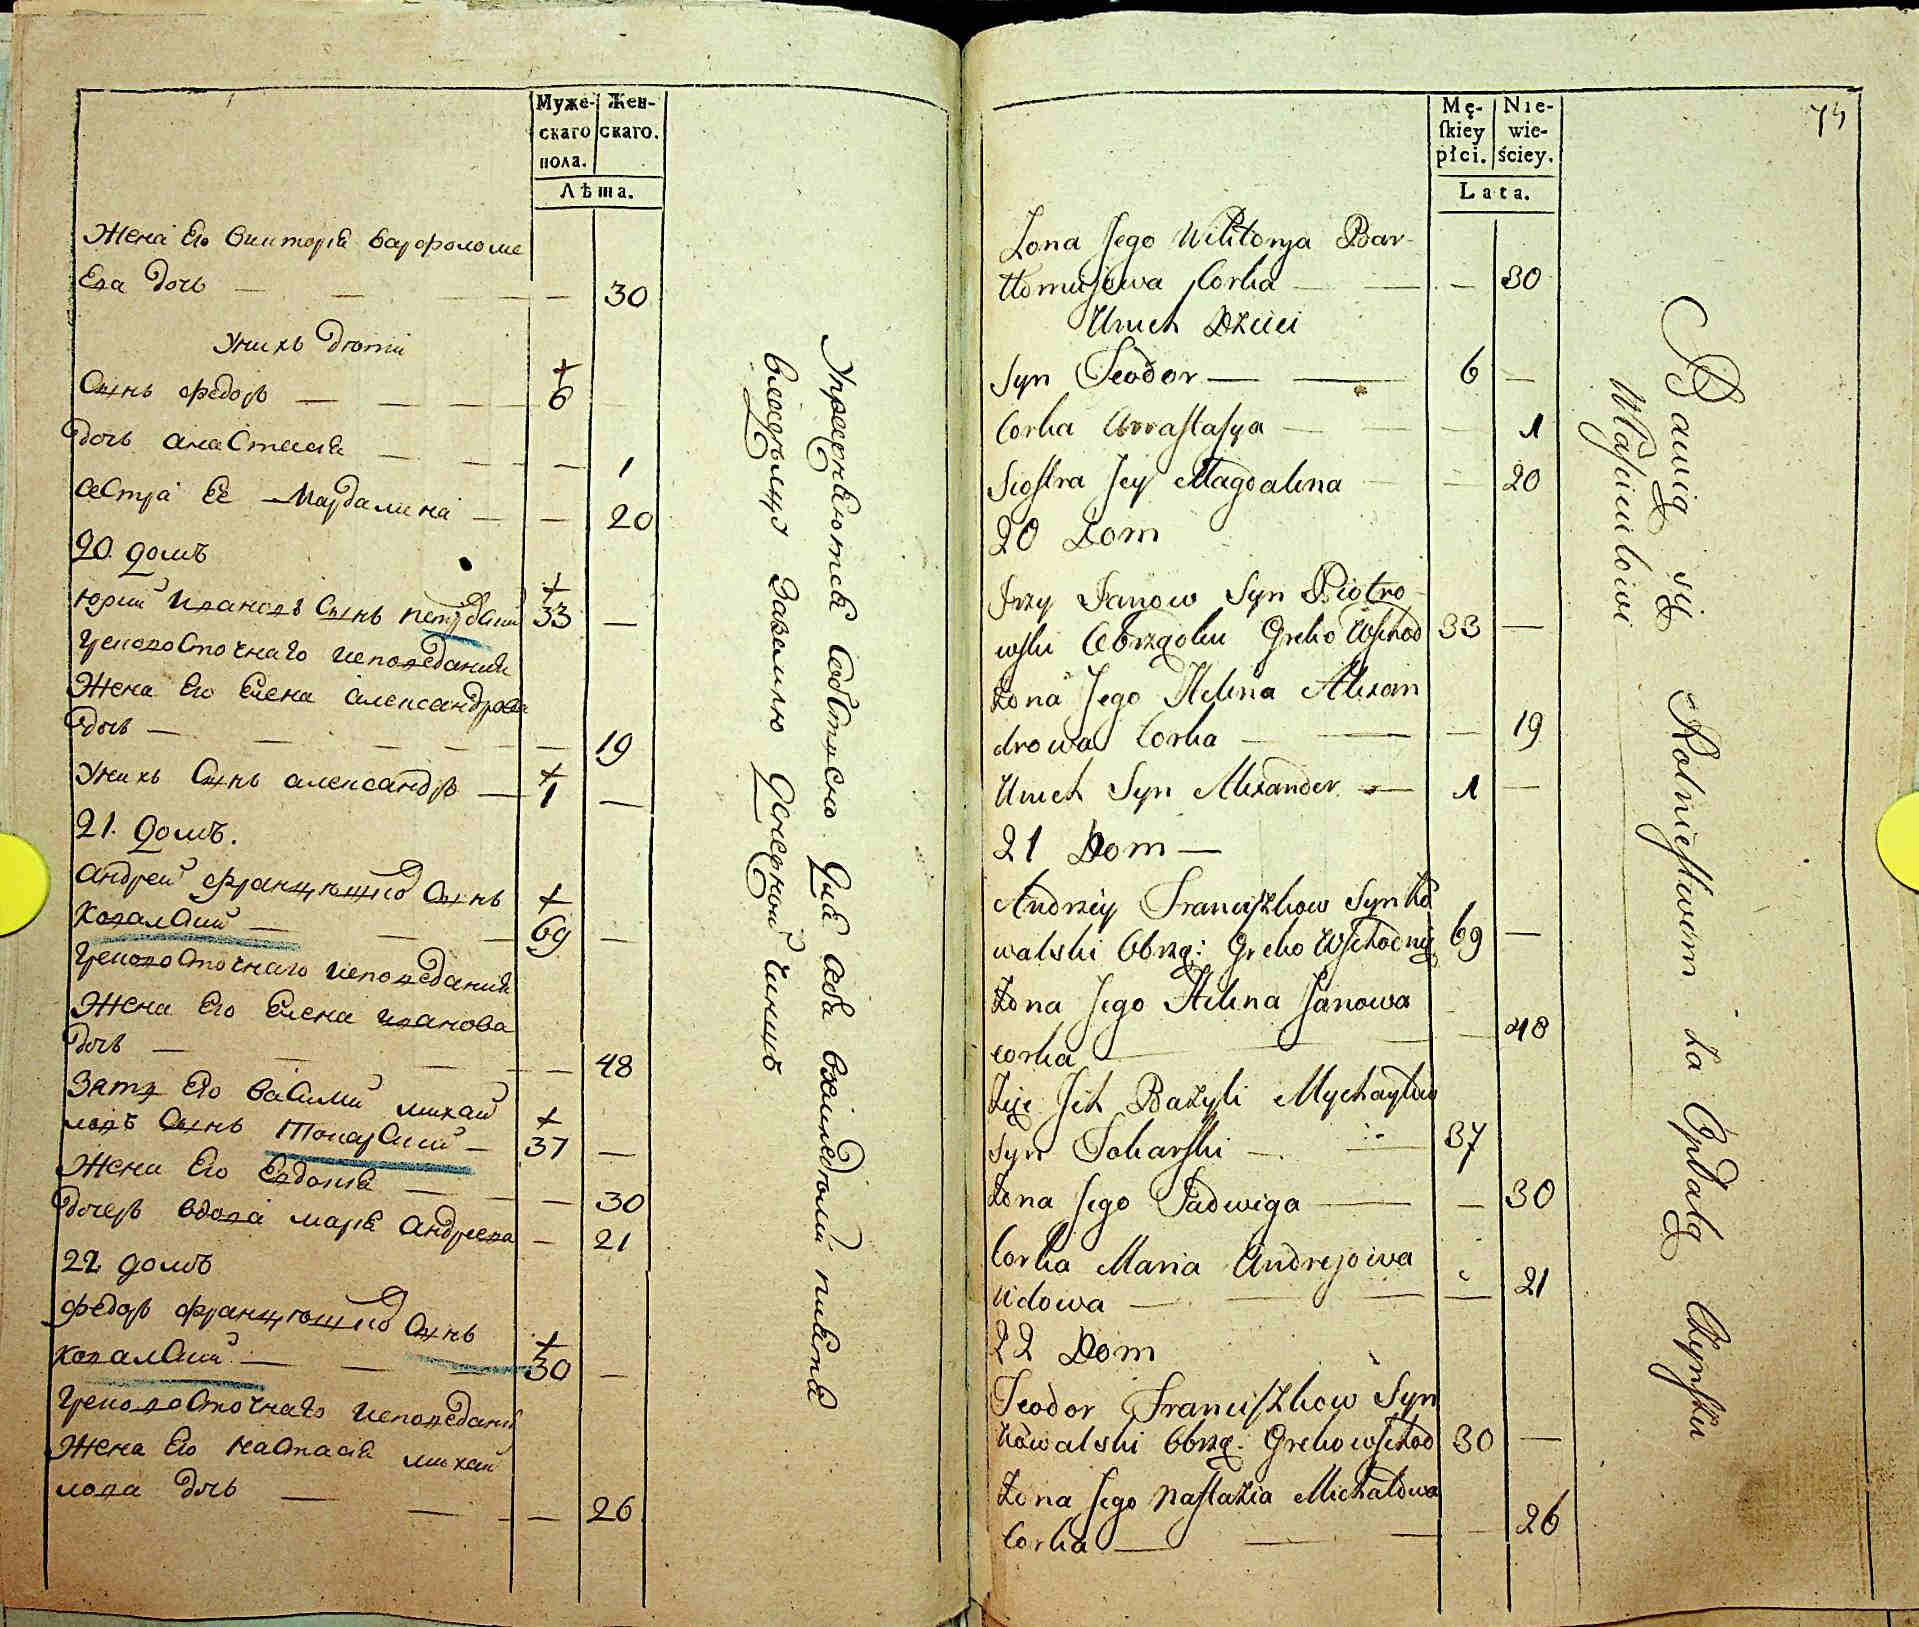 Муже-
скаго
пола.
Жен-
скаго.
Лѣта.
Жена Его Викторія Варфоломе
Ева Дочь — — — — — 30
Унихъ Дѣти
Сынъ Федоръ — — — — 6
Дочь анастасія — — — 1
Сестра Ее Магдалина — — 20
20. домъ
Юрий Ивановъ Сынъ 33 —
грековосточнаго исповеданія
Жена Его Елена александрова
Дочь — — — — — 19
Унихъ Сынъ александръ — 1 —
21. домъ.
андрей Францишковъ Сынъ
Ковалский — — — 69 —
грековосточнаго исповеданія
Жена Его Елена иванова
Дочь — — — — 48
Зять Его Василий михай
ловъ Сынъ Токарский — 37 —
Жена Его Евдокія — — — 30
Дочерь вдова марія андреева — 21
22 домъ
Федоръ Францишковъ Сынъ
Ковалский — — — 30 —
грековосточнаго исповеданія
Жена Его настасія михай
лова Дочь — — — — 26
Упражняются
Mę-
skiey
płci.
Nie-
wie-
ściey.
Lata.
Zona Jego Wiktorya Bar-
tłomiejowa Corka — — — 30
Unich Dzieci
Syn Teodor — — 6 —
Corka Anastasya — — — 1
Siostra Jey Magdalena — — 20
20 Dom
Jrzy Janow Syn Piotro-
wski Obrządku Greko Wschod 33 —
Zona Jego Helena Alexan
drowa Corka — — — 19
Unich Syn Alexander — — 1 —
21 Dom —
Andrzey Franciszkow Syn Ko
walski Obrzą: Greko Wschodnie 69 —
Zona Jego Helena Janowa
corka — — — 48
Zięć Ich Bazyli Mychayłow
Syn Tokarski — — 37
Zona Jego Jadwiga — — 30
Corka Maria Andrejowa
Wdowa — — — — 21
22 Dom
Teodor Franciszkow Syn
Kowalski Obrzą. Greko wschod 30 —
Zona Jego Nastazia Michałowa
Corka — — — — 26
Bawią się Rolnictwem za Opłatą Czynszu
Właścicielowi